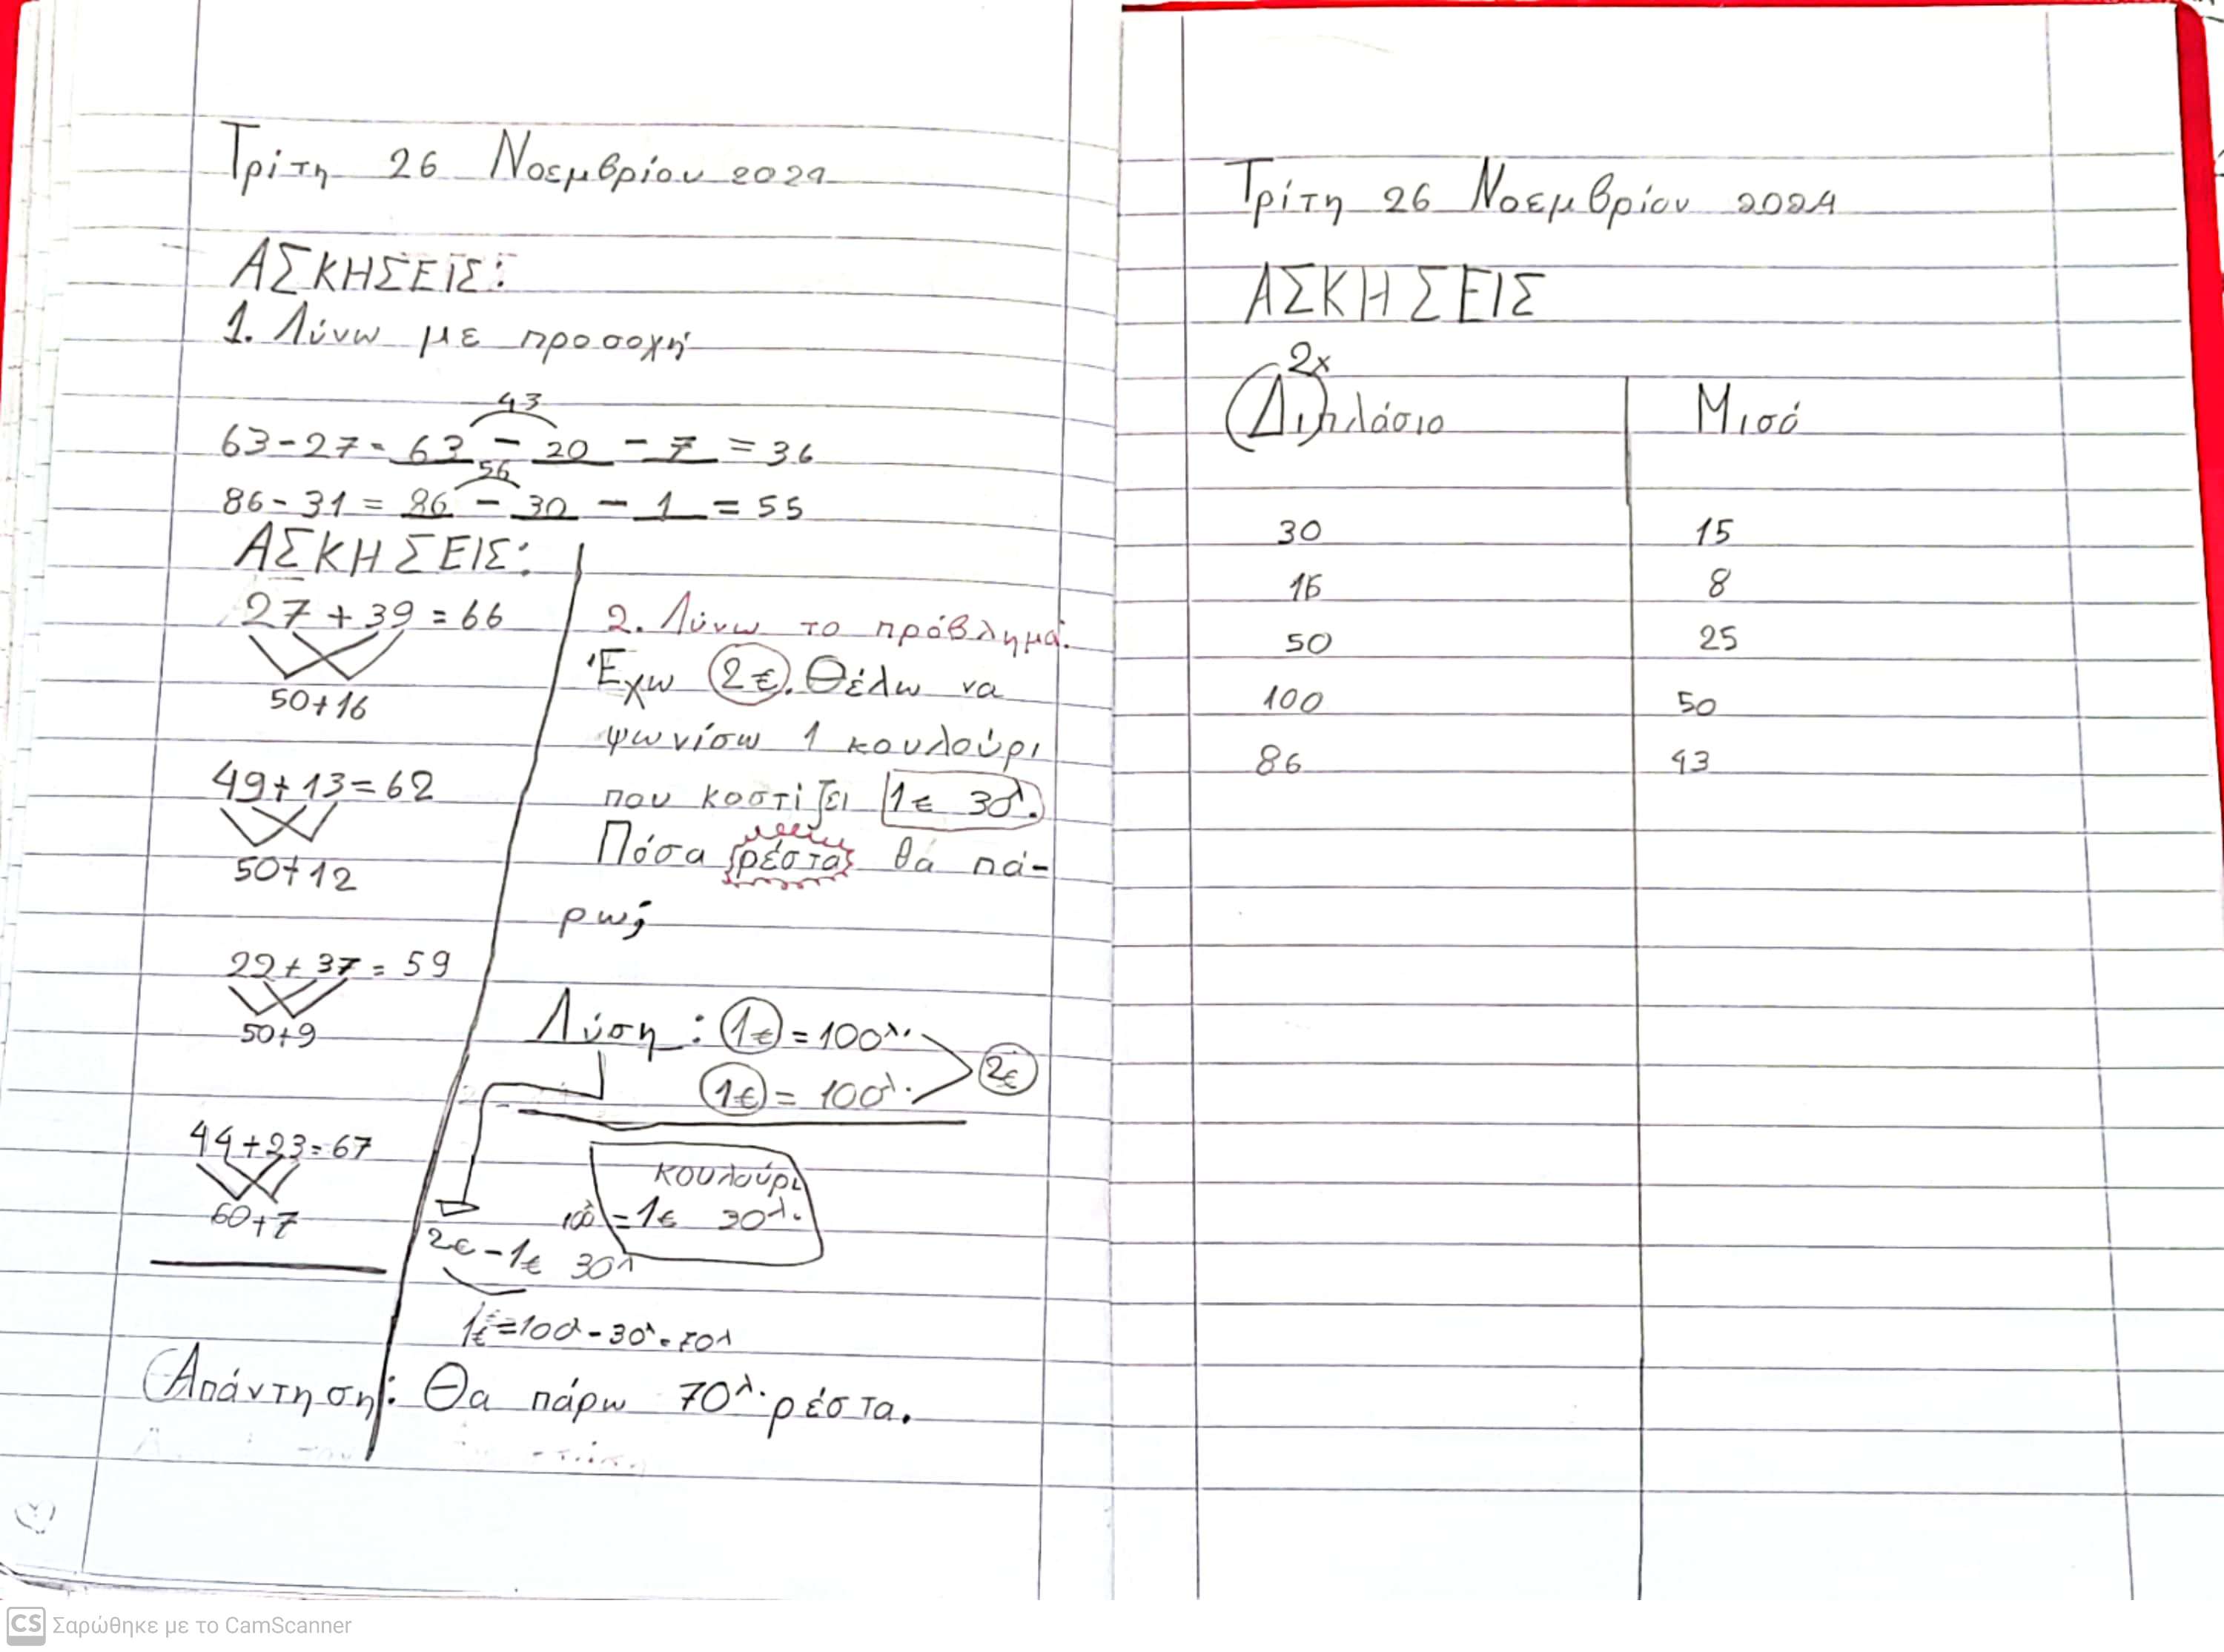 Τρίτη 26 Νοεμβρίου 2024
ΑΣΚΗΣΕΙΣ:
1. Λύνω με προσοχή
43
63-27= 63 - 20 - 7 = 36
56
86-31 = 86 - 30 - 1 = 55
ΑΣΚΗΣΕΙΣ:
27 + 39 = 66
50+16
49+13=62
50+12
22+37= 59
50+9
44+23=67
60+7
2. Λύνω το πρόβλημα.
Έχω 2€. Θέλω να
ψωνίσω 1 κουλούρι
που κοστίζει 1€ 30λ.
Πόσα ρέστα θα πά-
ρω;
Λύση: 1€ = 100λ.
1€ = 100λ.
2€
κουλούρι
100λ = 1€ 30λ.
2€ - 1€ 30λ
1€=100λ - 30λ = 70λ
Απάντηση: Θα πάρω 70λ. ρέστα.
Τρίτη 26 Νοεμβρίου 2024
ΑΣΚΗΣΕΙΣ
2x
Διπλάσιο Μισό
30 15
16 8
50 25
100 50
86 43
CS Σαρώθηκε με το CamScanner